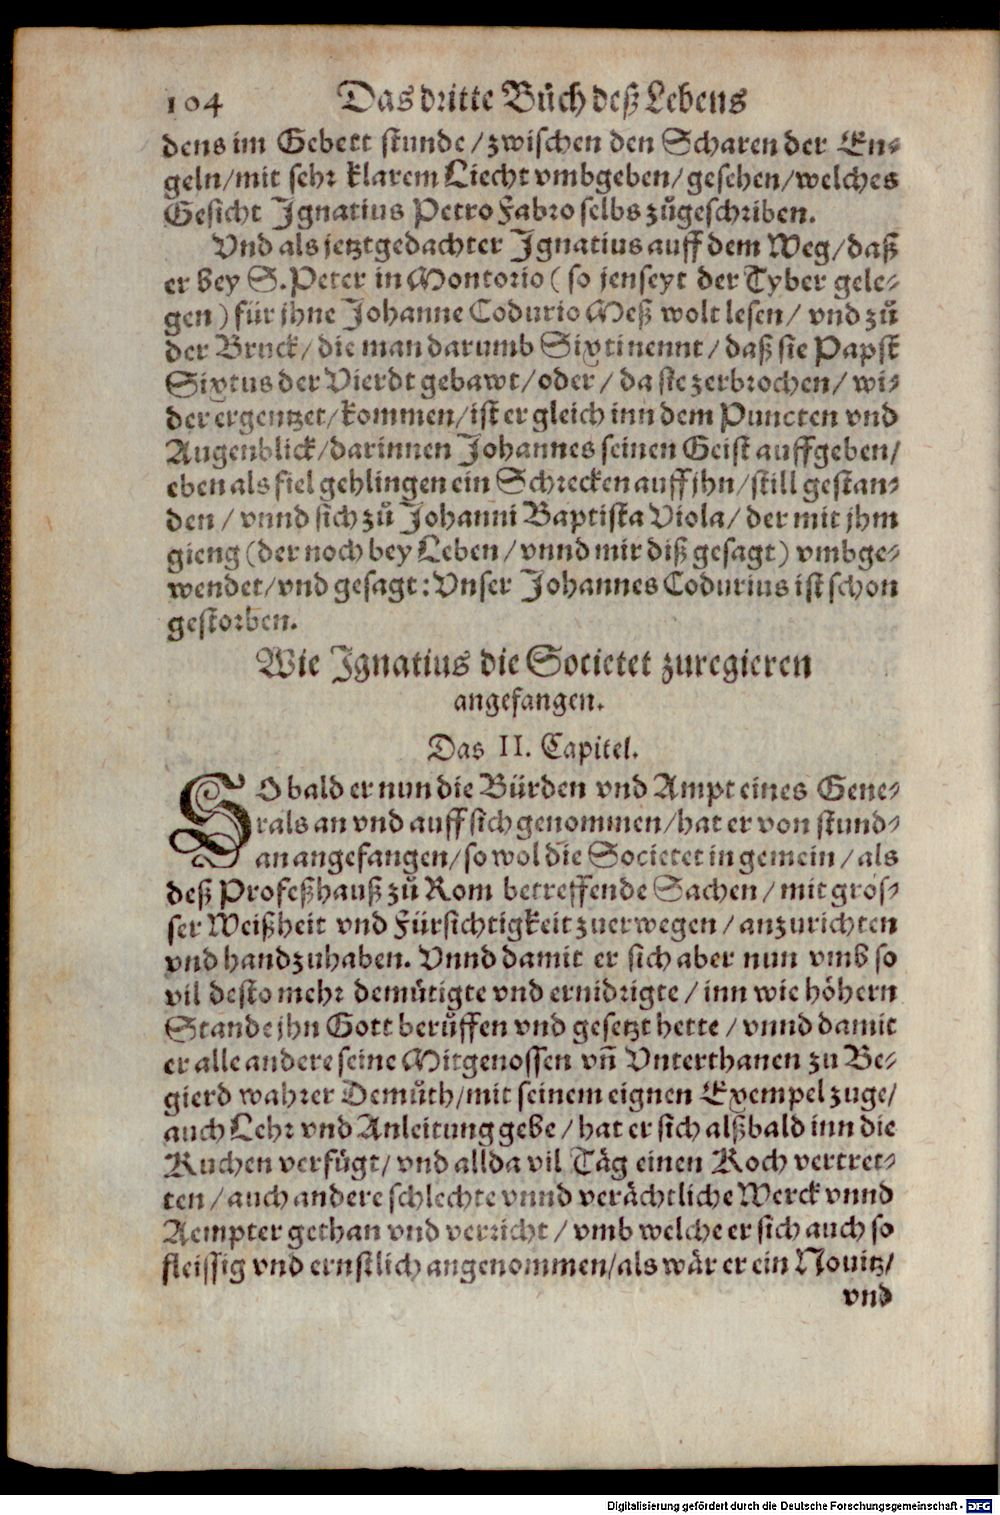 104 Das dritte Bůch deß Lebens
dens im Gebett stunde/ zwischen den Scharen der En-
geln/ mit sehr klarem Liecht vmbgeben/ gesehen/ welches
Gesicht Ignatius Petro Fabro selbs zůgeschriben.
Vnd als jetztgedachter Ignatius auff dem Weg/ daß
er bey S. Peter in Montorio ( so jenseyt der Tyber gele-
gen ) für jhne Johanne Codurio Meß wolt lesen/ vnd zů
der Bruck/ die man darumb Sixti nennt/ daß sie Papst
Sixtus der Vierdt gebawt/ oder/ da sie zerbrochen/ wi-
der ergentzet/ kommen/ ist er gleich inn dem Puncten vnd
Augenblick/ darinnen Johannes seinen Geist auffgeben/
eben als fiel gehlingen ein Schrecken auff jhn/ still gestan-
den/ vnnd sich zů Johanni Baptista Viola/ der mit jhm
gieng (der noch bey Leben/ vnnd mir diß gesagt) vmbge-
wendet/ vnd gesagt: Vnser Johannes Codurius ist schon
gestorben.
Wie Ignatius die Societet zuregieren
angefangen.
Das II. Capitel.
SO bald er nun die Bürden vnd Ampt eines Gene-
rals an vnd auff sich genommen/ hat er von stund-
an angefangen/ so wol die Societet in gemein/ als
deß Profeßhauß zů Rom betreffende Sachen/ mit gros-
ser Weißheit vnd Fürsichtigkeit zuerwegen/ anzurichten
vnd handzuhaben. Vnnd damit er sich aber nun vmb so
vil desto mehr demütigte vnd ernidrigte/ inn wie höhern
Stande jhn Gott berůffen vnd gesetzt hette/ vnnd damit
er alle andere seine Mitgenossen vñ Vnterthanen zu Be-
gierd wahrer Demůth/ mit seinem eignen Exempel zuge/
auch Lehr vnd Anleitung gebe/ hat er sich alßbald inn die
Kuchen verfügt/ vnd allda vil Täg einen Koch vertret-
ten/ auch andere schlechte vnnd verächtliche Werck vnnd
Aempter gethan vnd verricht/ vmb welche er sich auch so
fleissig vnd ernstlich angenommen/ als wär er ein Nouitz/
vnd
Digitalisierung gefördert durch die Deutsche Forschungsgemeinschaft - DFG